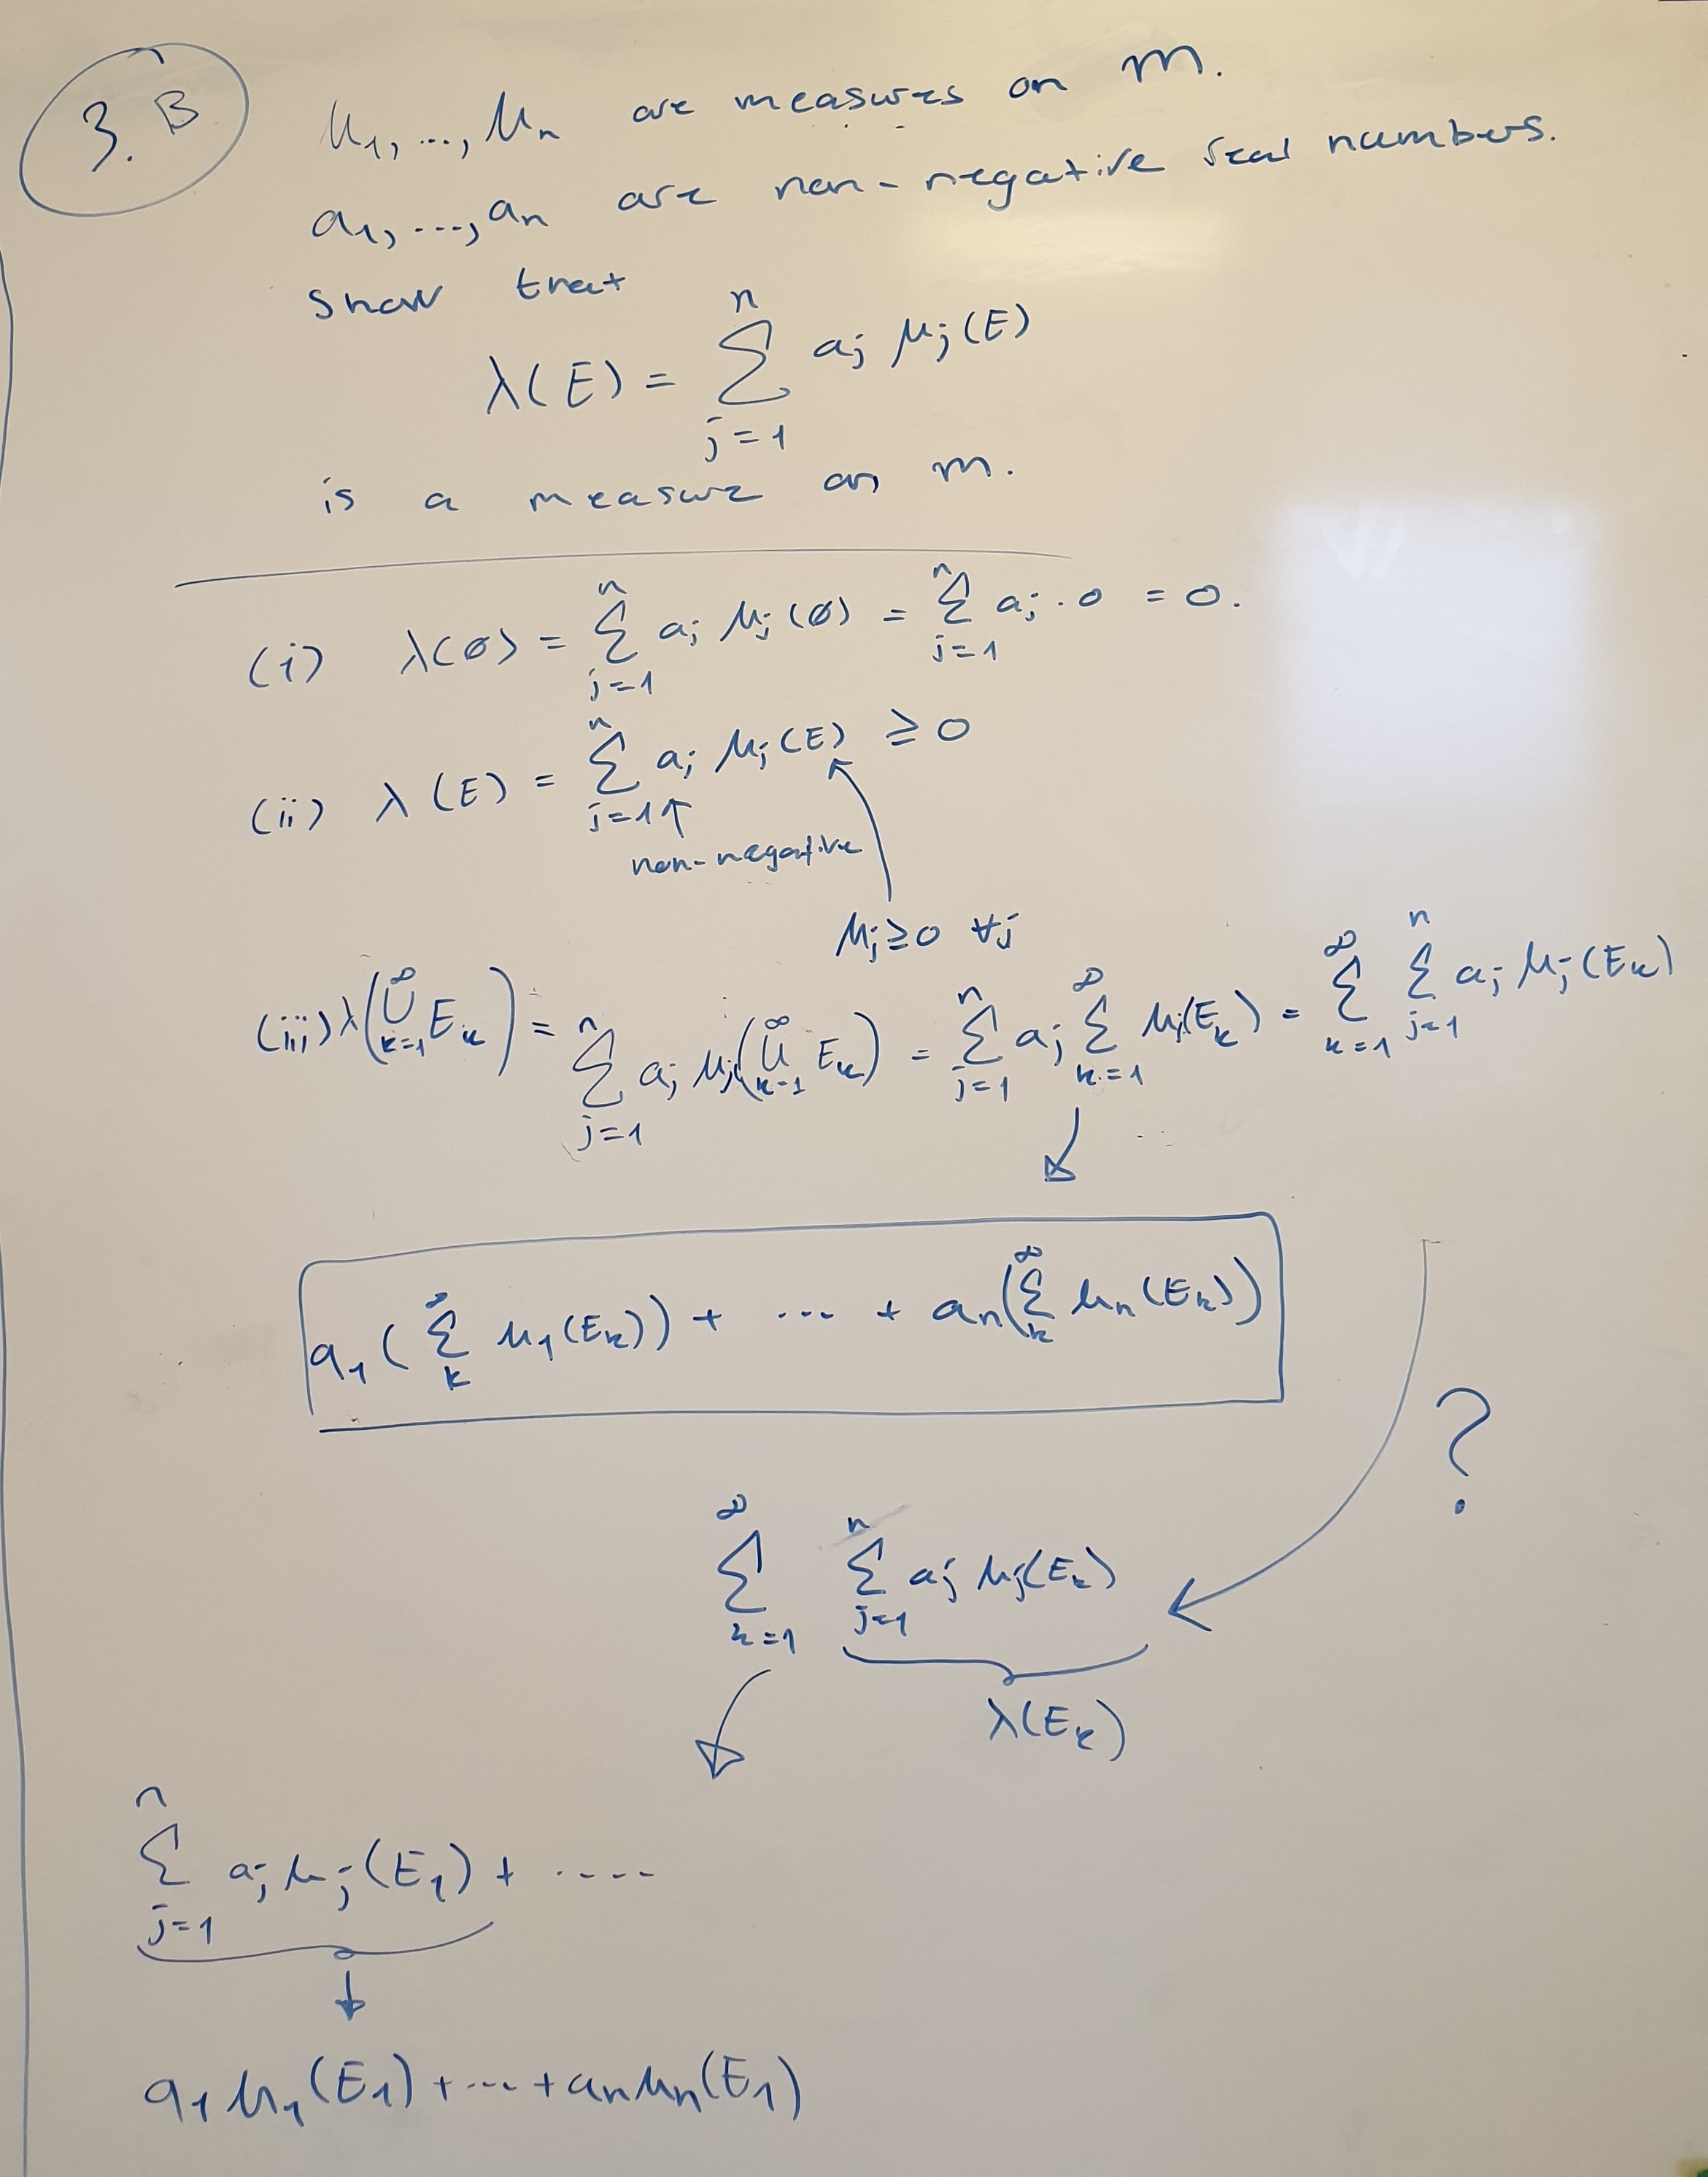 3.B
μ₁, ..., μₙ are measures on m.
a₁, ..., aₙ are non-negative real numbers.
show that
λ(E) = ∑_{j=1}^{n} aⱼ μⱼ(E)
is a measure on m.
(i) λ(∅) = ∑_{j=1}^{n} aⱼ μⱼ(∅) = ∑_{j=1}^{n} aⱼ · 0 = 0.
(ii) λ(E) = ∑_{j=1}^{n} aⱼ μⱼ(E) ≥ 0
non-negative
μⱼ ≥ 0 ∀j
(iii) λ(⋃_{k=1}^{∞} Eₖ) = ∑_{j=1}^{n} aⱼ μⱼ(⋃_{k=1}^{∞} Eₖ) = ∑_{j=1}^{n} aⱼ ∑_{k=1}^{∞} μⱼ(Eₖ) = ∑_{k=1}^{∞} ∑_{j=1}^{n} aⱼ μⱼ(Eₖ)
a₁(∑_{k}^{∞} μ₁(Eₖ)) + ... + aₙ(∑_{k}^{∞} μₙ(Eₖ))
?
∑_{k=1}^{∞} ∑_{j=1}^{n} aⱼ μⱼ(Eₖ)
λ(Eₖ)
∑_{j=1}^{n} aⱼ μⱼ(E₁) + .....
a₁ μ₁(E₁) + ... + aₙ μₙ(E₁)